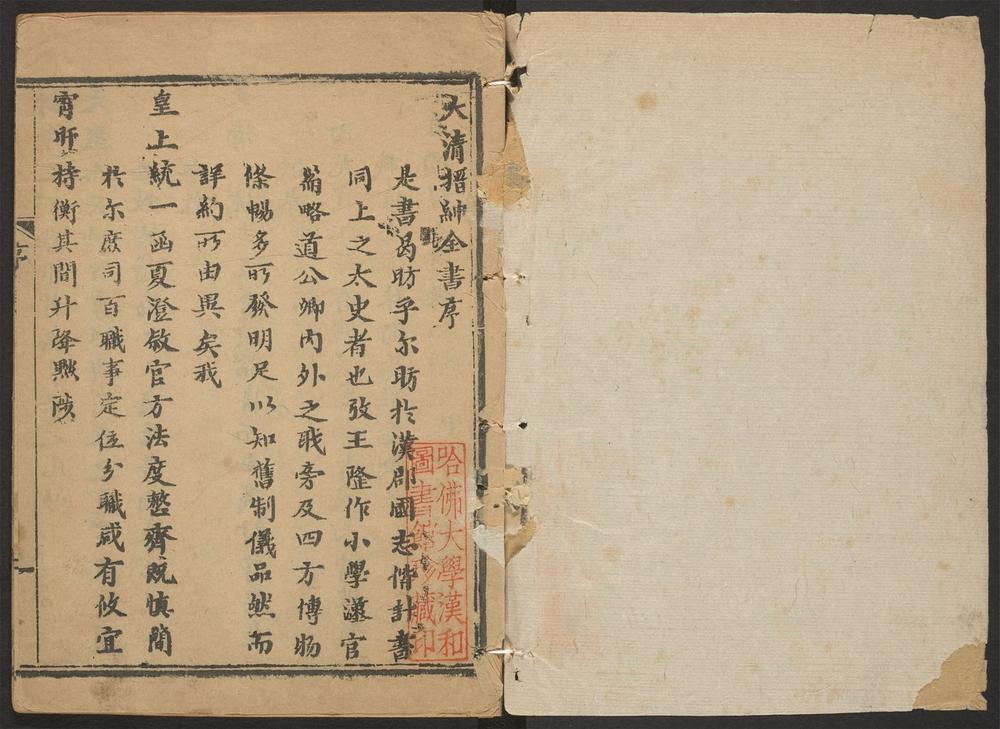 大清搢紳全書序
是書曷昉乎尔昉扵漢郡國志偕計書
同上之太史者也攷王隆作小學漢官
篇略道公卿内外之職旁及四方博物
條暢多所發明足以知舊制儀品然而
詳約所由異矣我
皇上統一函夏澄敘官方法度整齊既慎簡
扵尓庶司百職事定位分職咸有攸宜
宵旰持衡其間升降黜陟
序
哈佛大學漢和
圖書館珍藏印